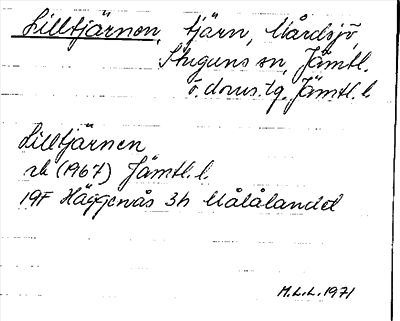 Lilltjärnen, tjärn, Mårdsjö,
Stuguns sn, Jämtl.
ö. doms. tg. Jämtl. l.
Lilltjärnen
rk (1967) Jämtl. l.
19F Häggenås 3h Målålandet
M.L.L. 1971